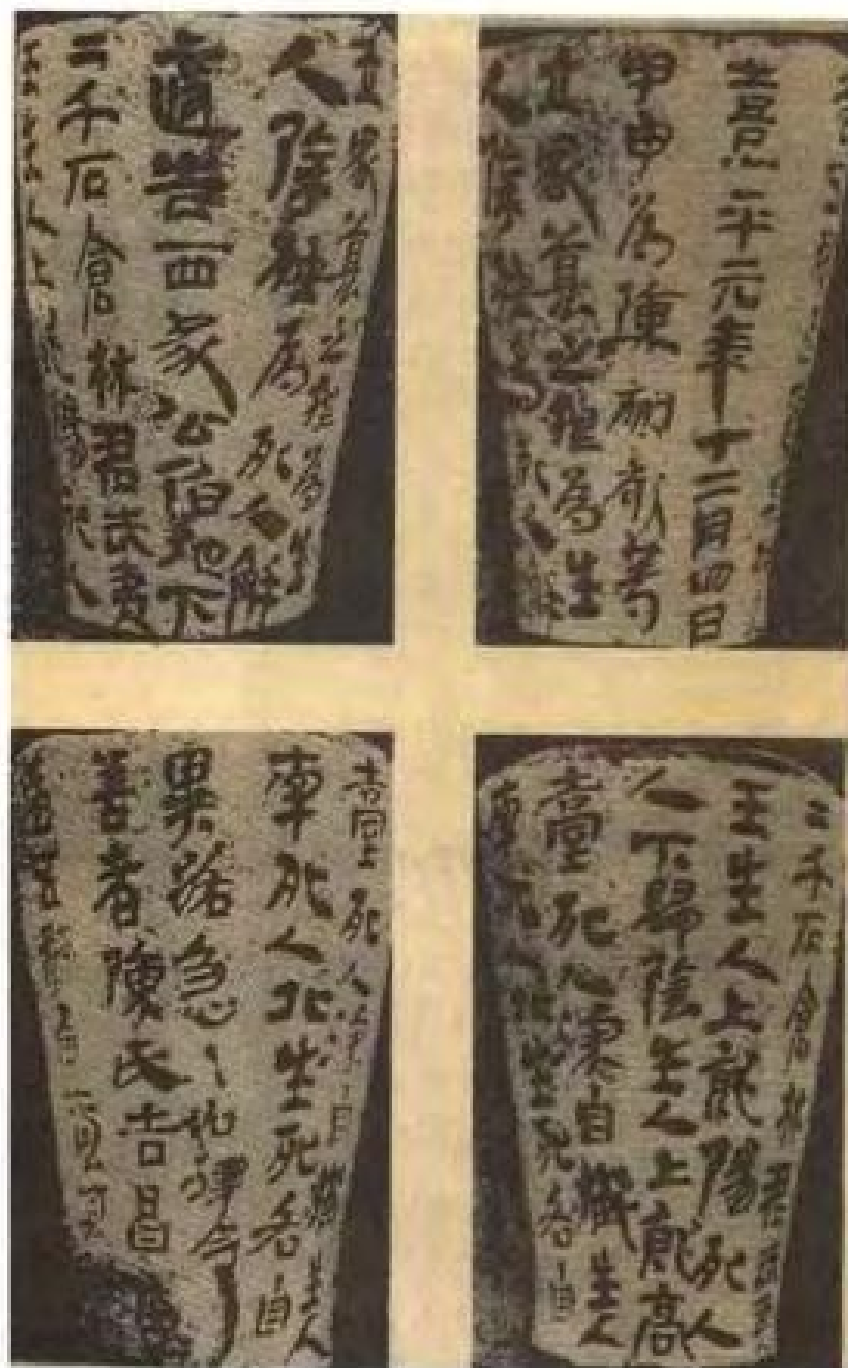 熹平元年十二月四日
甲申為陳初敬等
立冢墓之根為生
人除殃為死人解
立冢墓之根為生
人除殃為死人解
適告西冢公伯地下
二千石倉林君武夷
王生人上就陽死人
二千石倉林君武夷
王生人上就陽死人
下歸陰生人上就高
臺死人深自藏生人
南死人北生死各自
臺死人深自藏生人
南死人北生死各自
異路急々如律令
善者陳氏吉昌